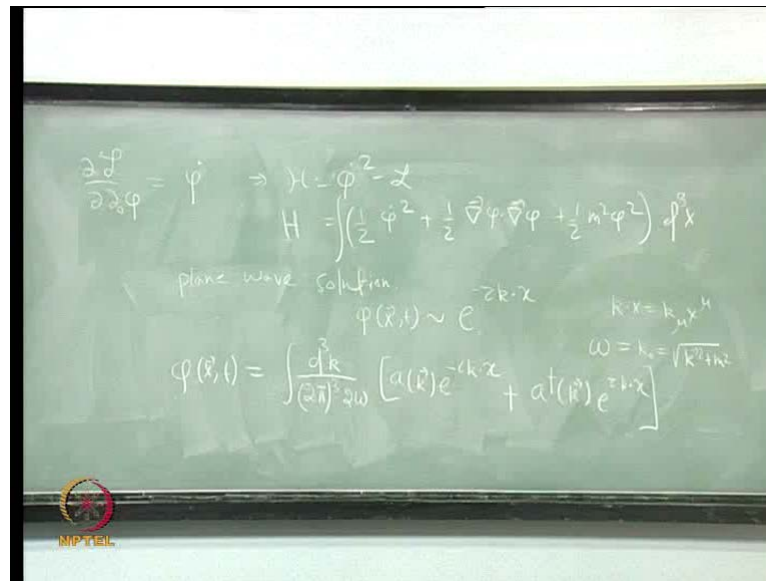 ∂ℒ/∂∂₀φ = φ̇ → ℋ = φ̇² - ℒ
H = ∫(½ φ̇² + ½ ∇⃗φ·∇⃗φ + ½ m²φ²) d³x
plane wave solution.
φ(x⃗,t) ~ e^{-ik·x}
k·x = k_μ x^μ
ω = k₀ = √(k⃗²+m²)
φ(x⃗,t) = ∫ d³k/((2π)³2ω) [a(k⃗)e^{-ik·x} + a†(k⃗)e^{ik·x}]
NPTEL